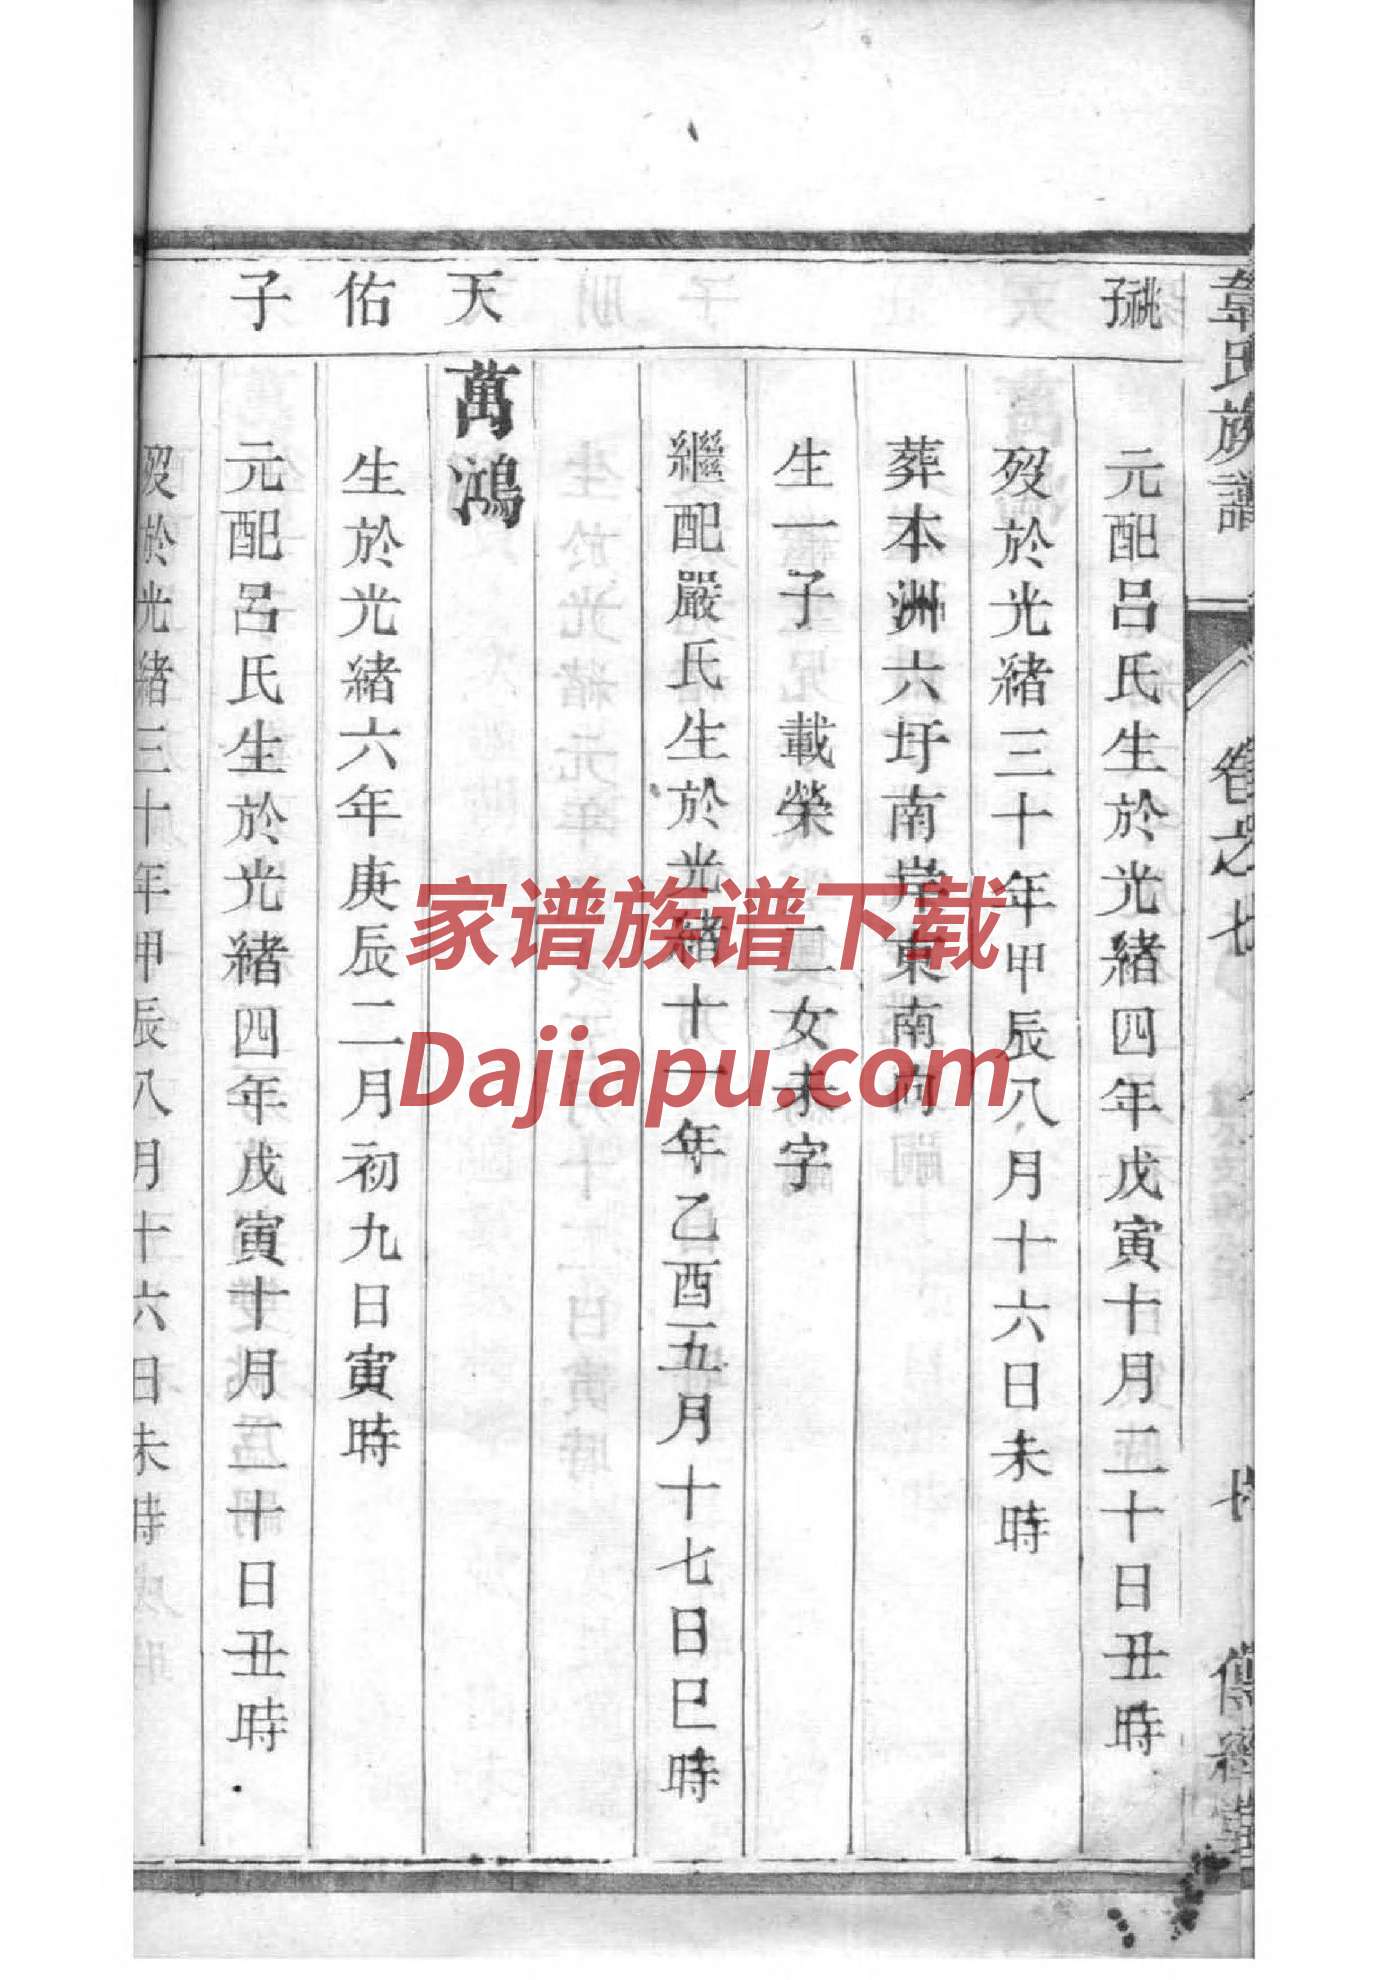 韋氏族譜 卷之七 七 傳經堂
祧孫
元配呂氏生於光緒四年戊寅十月二十日丑時
歿於光緒三十年甲辰八月十六日未時
葬本洲六圩南岸東南向
生一子 載榮 二女未字
繼配嚴氏生於光緒十一年乙酉五月十七日巳時
天
萬鴻
佑
生於光緒六年庚辰二月初九日寅時
子
元配呂氏生於光緒四年戊寅十月二十日丑時
歿於光緒三十年甲辰八月十六日未時
家谱族谱下载
Dajiapu.com